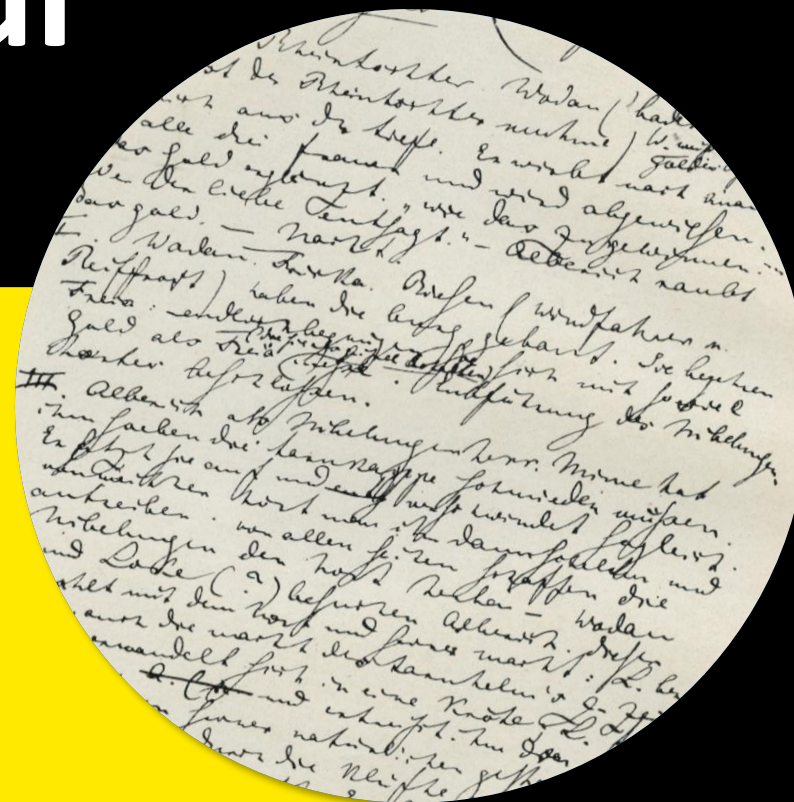 Rheintöchter Wodan (badet
ist der Rheintöchter muhme)
aus der tiefe. Er wirbt nach
alle drei frauen und wird abgewiesen.
das Gold erglänzt. „wie das zu gewinnen.
Wer der liebe entsagt." – Alberich raubt
das gold. — Nacht.
II. Wodan. Fricka. Riesen (windfahrer u.
Reiffrost) haben die burg gebaut. Sie begehren
Freia: sich mit soviel
Gold als Freia wiegt. Entführung des Nibelungen
hortes beschlossen.
III. Alberich als Nibelungenherr. Mime hat
ihm soeben die tarnkappe schmieden müssen.
Er setzt sie auf und verschwindet sogleich.
hört man ihn dann schelten und
antreiben. von allen seiten schaffen die
Nibelungen den hort herbei – Wodan
und Loke (?) besuchen Alberich. dieser
mit dem hort und seiner macht: L.
auch die macht des tarnhelm's
verwandelt sich in eine kröte
und entreißt ihm den
seiner natürlichen
durch die Klüfte